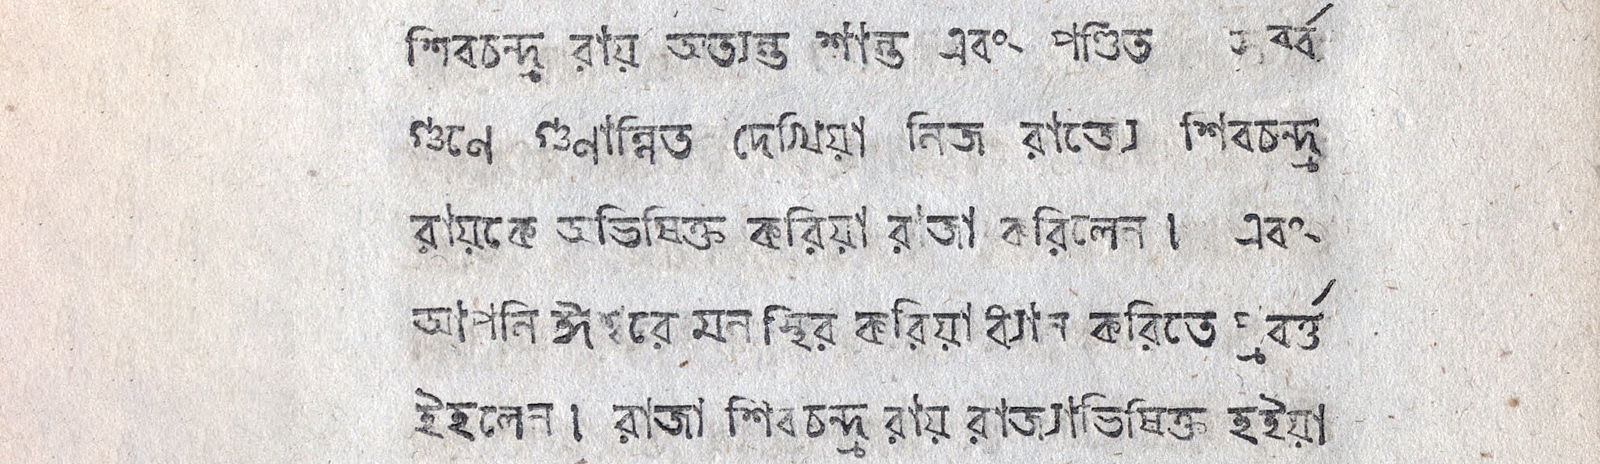 শিবচন্দ্র রায় অত্যন্ত শান্ত এবং পণ্ডিত সর্ব্ব
গুনে গুনান্নিত দেখিয়া নিজ রাজ্যে শিবচন্দ্র
রায়কে অভিষিক্ত করিয়া রাজা করিলেন। এবং
আপনি ঈশ্বরে মন স্থির করিয়া ধ্যান করিতে প্রবর্ত্ত
ইহলেন। রাজা শিবচন্দ্র রায় রাজ্যাভিষিক্ত হইয়া